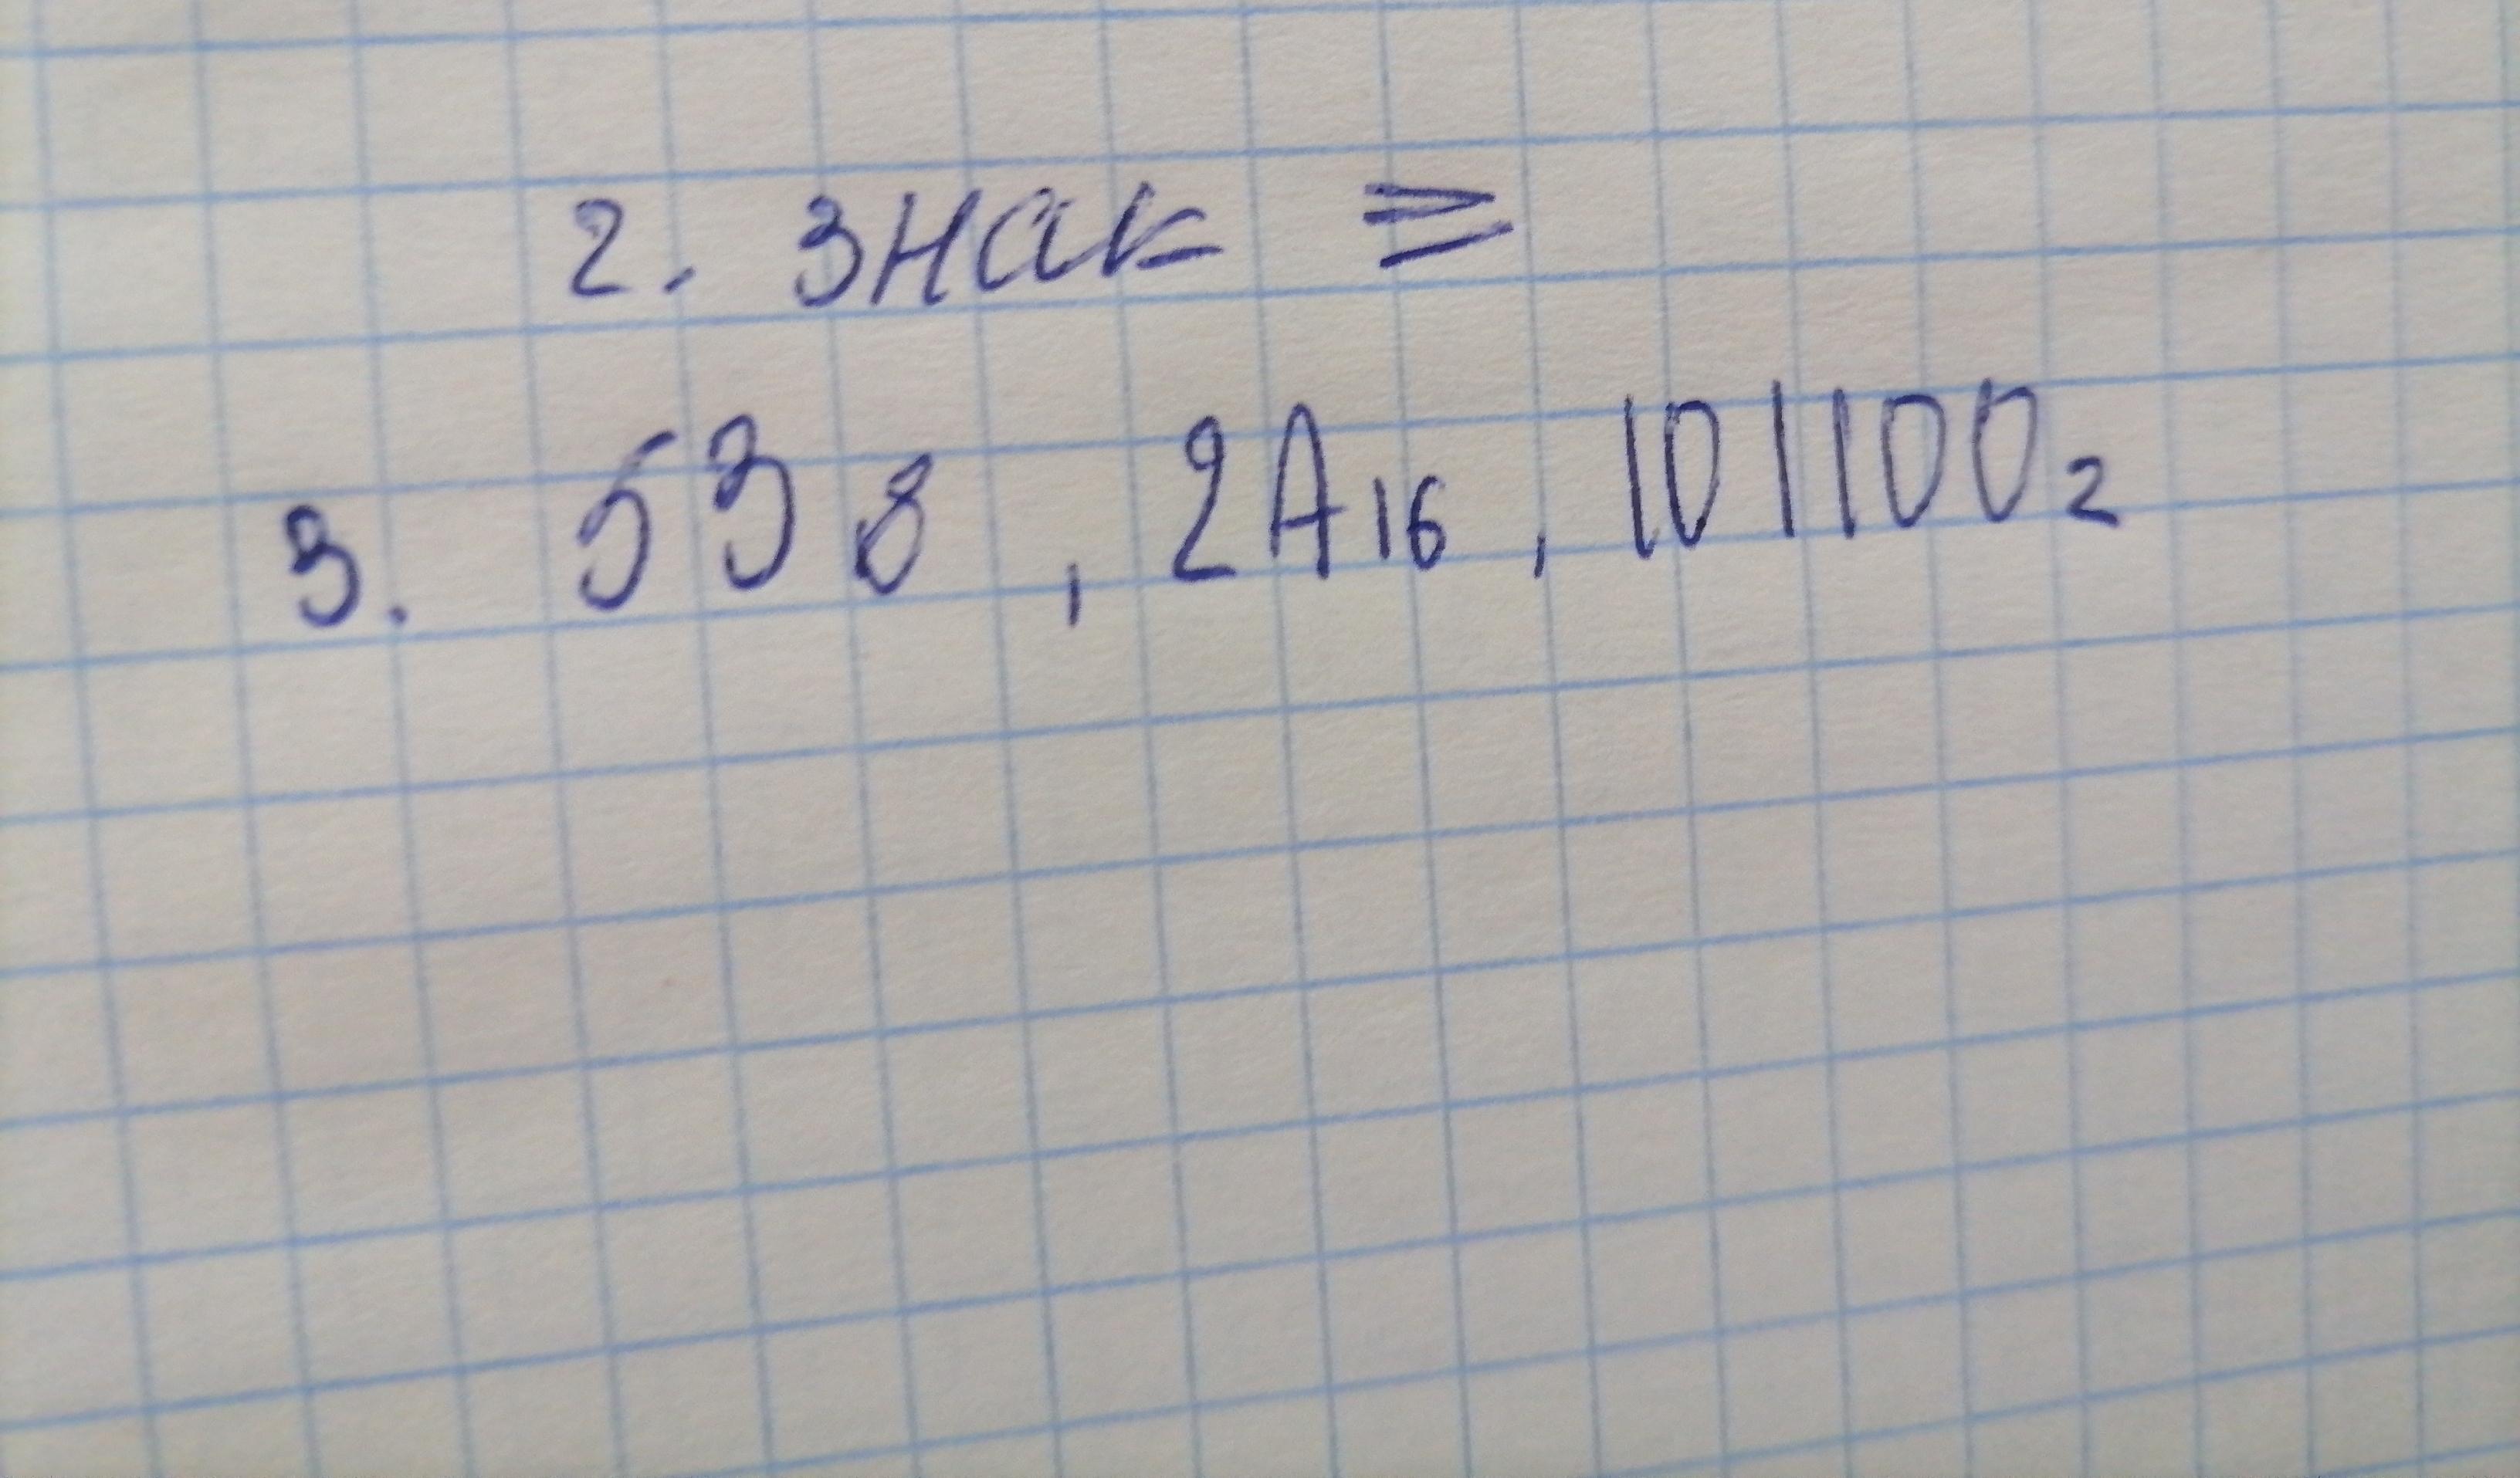 2. знак =>
3. 53₈ , 2A₁₆ , 101100₂